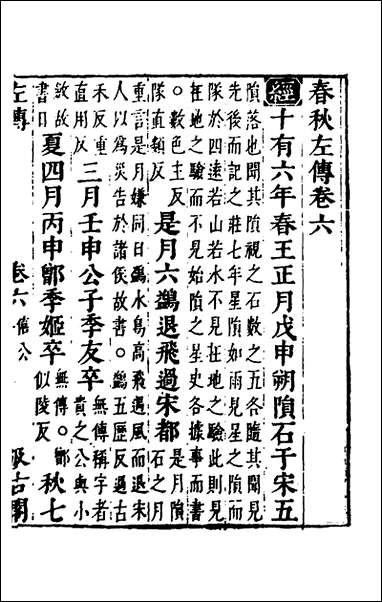 春秋左傳卷六
經十有六年春王正月戊申朔隕石于宋五
隕落也聞其隕視之石數之五各隨其聞見
先後而記之莊七年星隕如雨見星之隕而
隊於四遠若山若水不見在地之驗此則見
在地之驗而不見始隕之星史各據事而書
。數色主反隊直類反是月六鷁退飛過宋都是月隕石之月
重言是月嫌同日鷁水鳥高飛遇風而退宋
人以爲災告於諸侯故書。鷁五歷反過古
禾反重直用反三月壬申公子季友卒無傳稱字者貴之公與小
斂故書日夏四月丙申鄫季姬卒無傳。鄫似陵反秋七
左傳 卷六 僖公 汲古閣